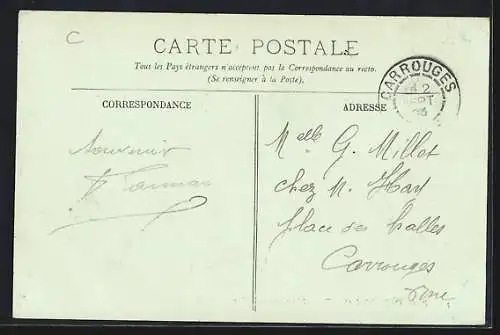 C
CARTE POSTALE
Tous les Pays étrangers n'acceptent pas la Correspondance au recto.
(Se renseigner à la Poste).
CARROUGES
2
CORRESPONDANCE
ADRESSE
Souvenir
Melle G. Millet
chez M.
place des halles
Carrouges
Orne